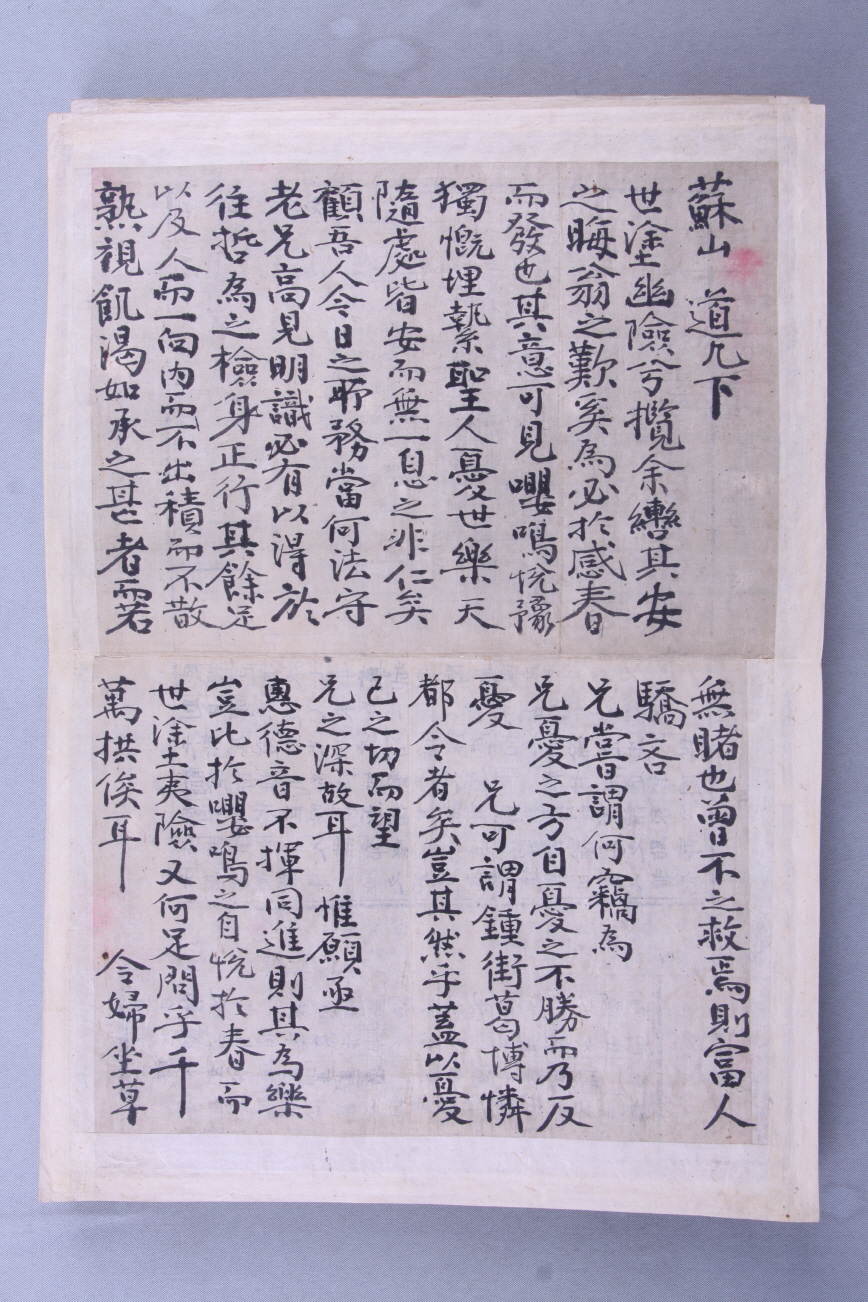 蘇山 道几下
世塗幽險兮攬余轡其安
之晦翁之歎奚為必於感春
而發也其意可見嚶鳴悅豫
獨慨埋蟄聖人憂世樂天
隨處皆安而無一息之非仁矣
顧吾人今日之所務當何法守
老兄高見明識必有以淂於
往哲為之檢身正行其餘足
以及人而一向內而不出積而不散
熟視飢渴如承之甚者而若
無睹也曾不之救焉則富人
驕吝
兄嘗謂何竊為
兄憂之方自憂之不勝而乃反
憂 兄可謂鍾街葛博憐
都令者矣豈其然乎蓋以憂
己之切而望
兄之深故耳 惟願亟
惠德音不揮同進則其為樂
豈比於嚶鳴之自悅於春而
世塗夷險又何足問乎千
萬拱俟耳 令婦坐草